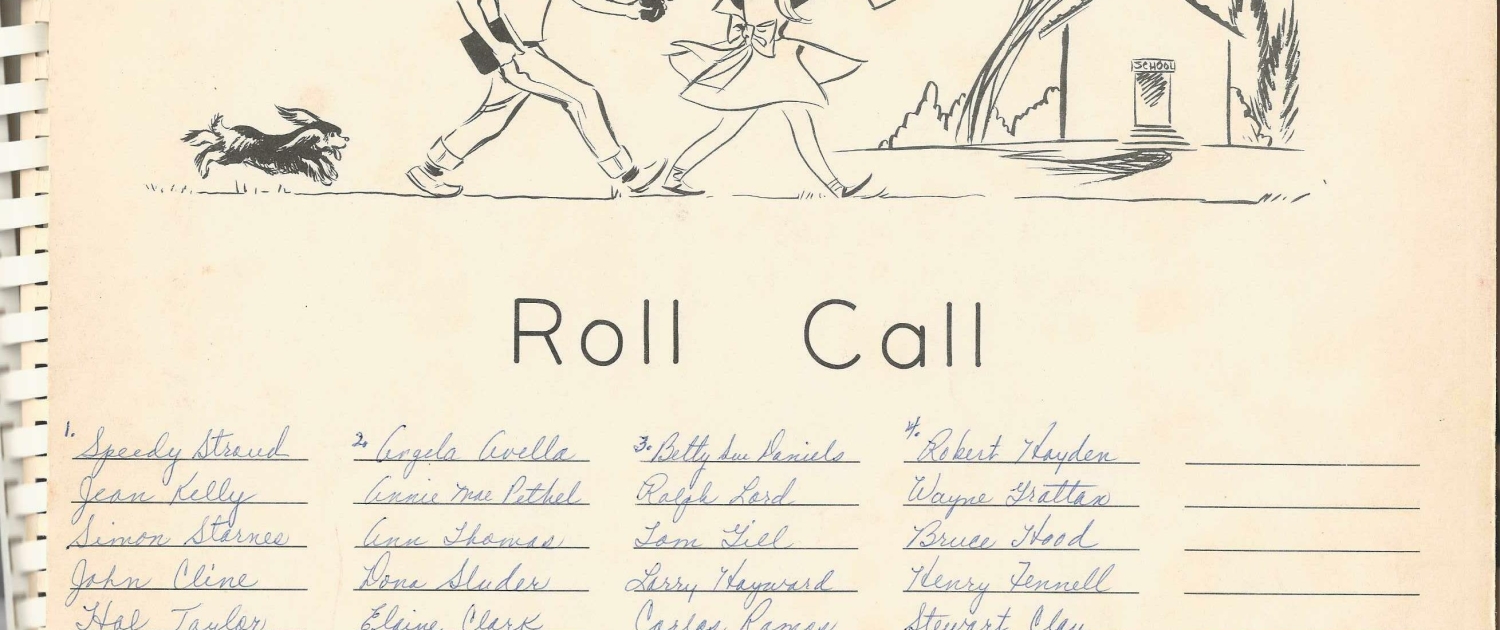 SCHOOL
Roll Call
1. Speedy Stroud 2. Angela Avella 3. Betty Sue Daniels 4. Robert Hayden
Jean Kelly Annie Mae Pethel Ralph Lord Wayne Grattan
Simon Starnes Ann Thomas Tom Gill Bruce Hood
John Cline Dona Sluder Larry Hayward Henry Fennell
Hal Taylor Elaine Clark Carlos Ramos Stewart Clay